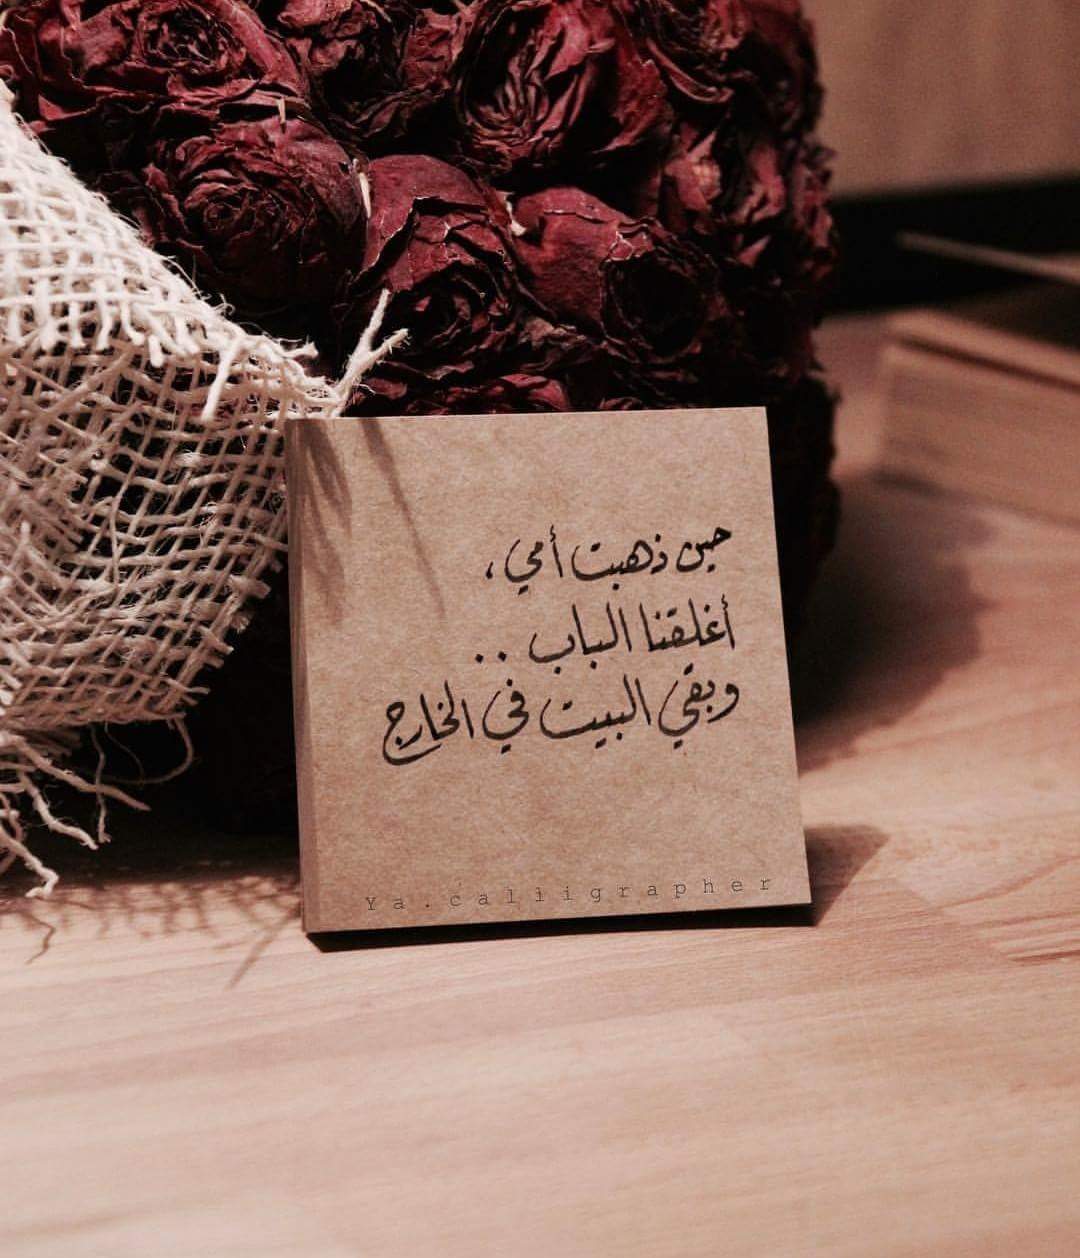 حين ذهبت أمي،
أغلقنا الباب ..
وبقي البيت في الخارج
Ya.caliigrapher